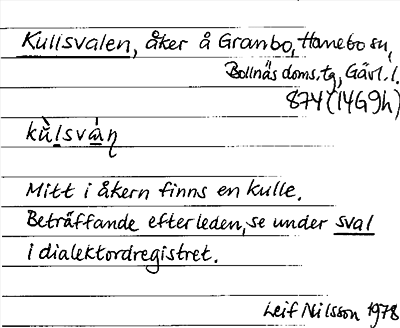 Kullsvalen, åker å Granbo, Hanebo sn,
Bollnäs doms.tg, Gävl.l.
874 (14G9h)
kù̲lsvá̲ɳ
Mitt i åkern finns en kulle.
Beträffande efterleden, se under sval
i dialektordregistret.
Leif Nilsson 1978